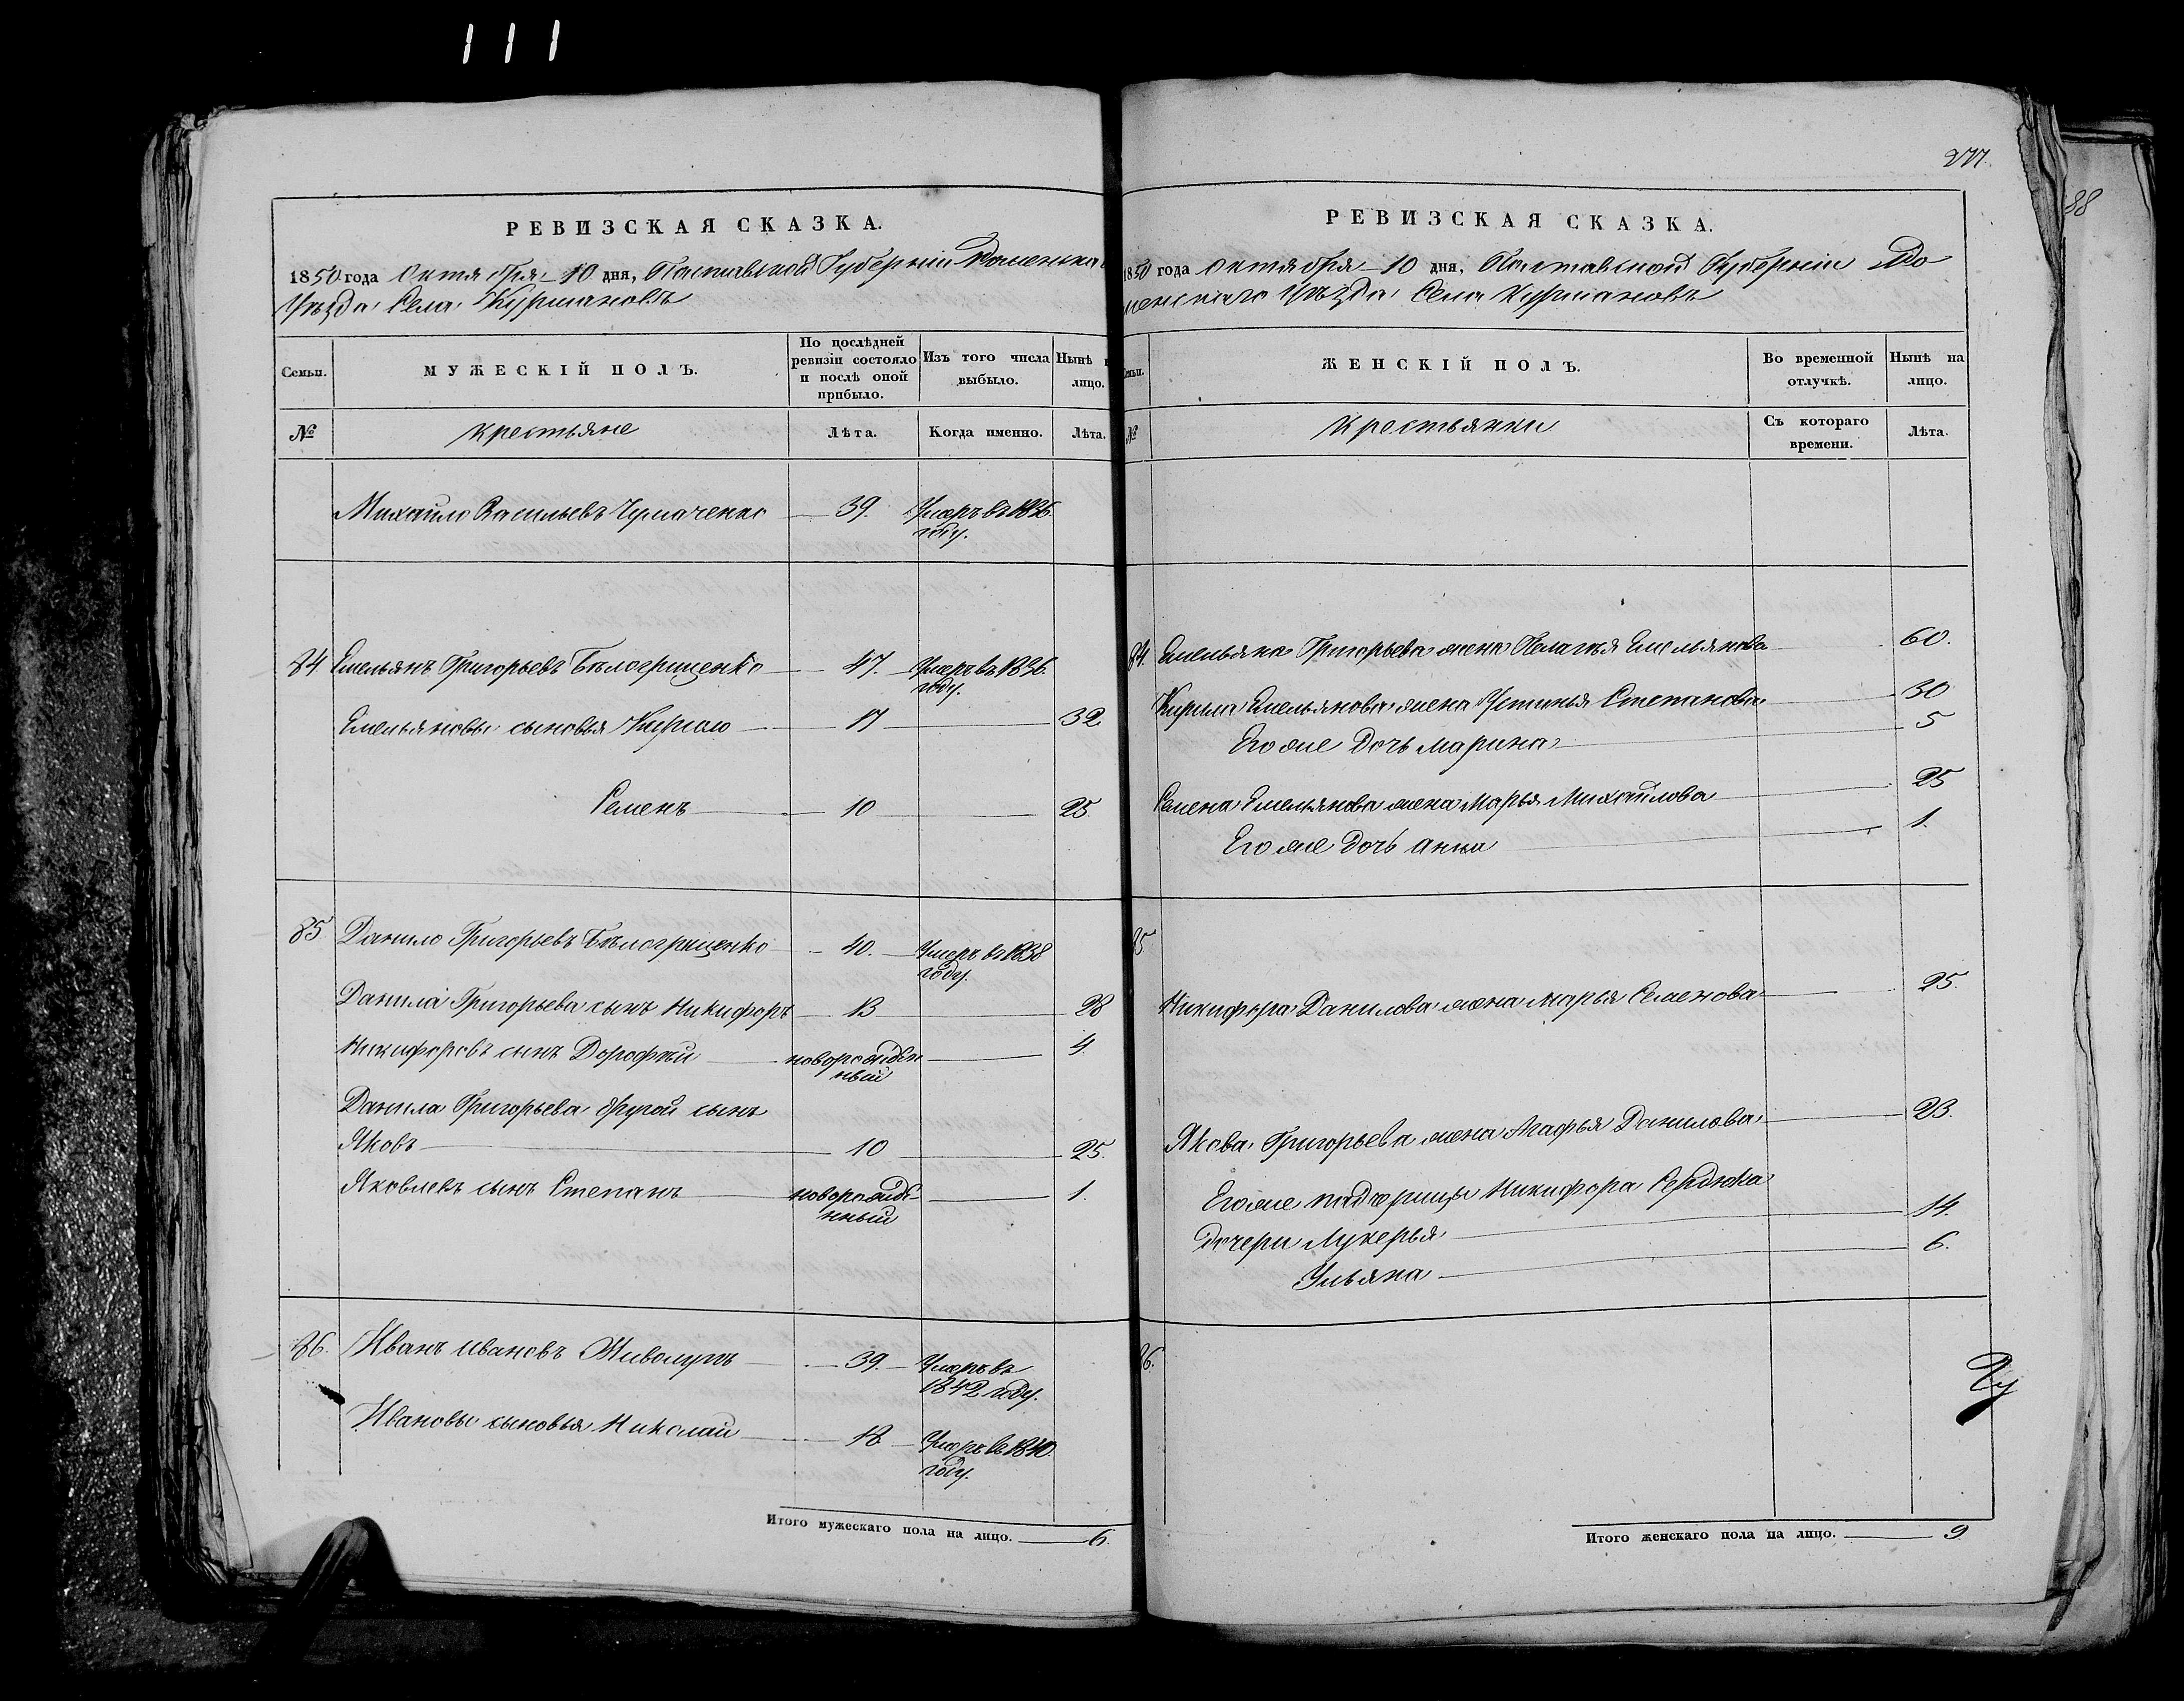 111
РЕВИЗСКАЯ СКАЗКА.
1850 года Октября 10 дня, Полтавской Губерніи Роменскаго
Уѣзда Села Курмановъ
Семьи.
МУЖЕСКІЙ ПОЛЪ.
По послѣдней ревизіи состояло и послѣ оной прибыло.
Изъ того числа выбыло.
Нынѣ на лицо.
№
крестьяне
Лѣта.
Когда именно.
Лѣта.
Михайло Васильевъ Чумаченко 39. Умеръ въ 1836
году.
84 Емельянъ Григорьевъ Бѣлогрищенко 47. Умеръ въ 1836
году.
Емельяновы сыновья Кирило 17 32
Семенъ 10 25.
85 Данило Григорьевъ Бѣлогрищенко 40. Умеръ въ 1838
году.
Данила Григорьева сынъ Никифоръ 13 28
Никифоровъ сынъ Дорофѣй новорожден
ный 4
Данила Григорьева другой сынъ
Яковъ 10 25.
Яковлевъ сынъ Степанъ новорожде
нный 1.
86. Иванъ Ивановъ 39. Умеръ въ
1842 году.
Ивановы сыновья Николай 18 Умеръ въ 1840
году.
Итого мужескаго пола на лицо. 6.
277.
88
РЕВИЗСКАЯ СКАЗКА.
1850 года Октября 10 дня, Полтавской Губерніи Ро
менскаго Уѣзда Села Курмановъ
Семьи.
ЖЕНСКІЙ ПОЛЪ.
Во временной отлучкѣ.
Нынѣ на лицо.
№
крестьянки
Съ котораго времени.
Лѣта.
84. Емельяна Григорьева жена Пелагѣя Емельянова 60.
Кирила Емельянова жена Устинья Степанова 30
Его же дочь Марина 5
Семена Емельянова жена Марья Михайлова 25
Его же дочь Анна 1.
85
Никифора Данилова жена Марья Семенова 25.
Якова Григорьева жена Агафья Данилова 23.
Его же падчерицы Никифора Сердюка
дочери Лукерья 14.
Ульяна 6.
86.
Итого женскаго пола на лицо. 9